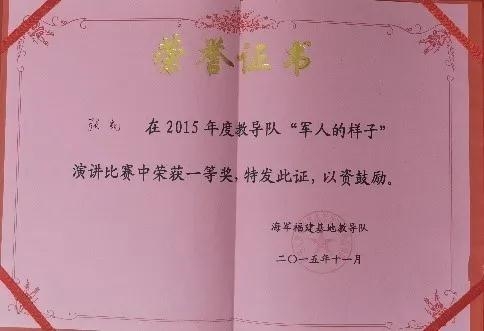 荣誉证书
张 在2015年度教导队“军人的样子”
演讲比赛中荣获一等奖，特发此证，以资鼓励。
海军福建基地教导队
二〇一五年十一月